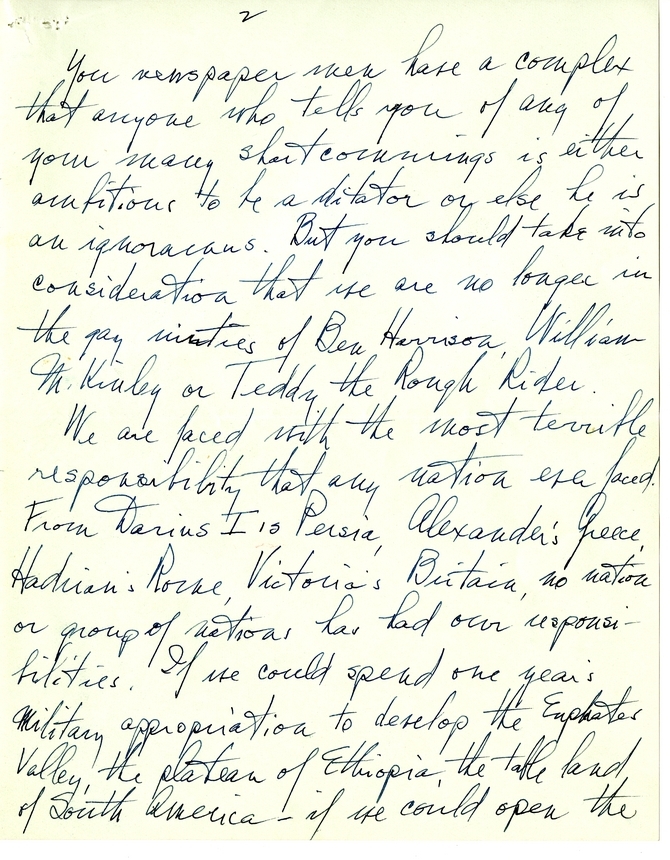 2
You newspaper men have a complex
that anyone who tells you of any of
your many shortcommings is either
ambitious to be a ditator or else he is
an ignoramus. But you should take into
consideration that we are no longer in
the gay nineties of Ben Harrison, William
McKinley or Teddy the Rough Rider.
We are faced with the most terrible
responsibility that any nation ever faced.
From Darius I is Persia, Alexander's Greece,
Hadrian's Rome, Victoria's Britain, no nation
or group of nations has had our responsi-
bilities. If we could spend one year's
military appropriation to develop the Euphrates
Valley, the plateau of Ethiopia, the table land
of South America - if we could open the